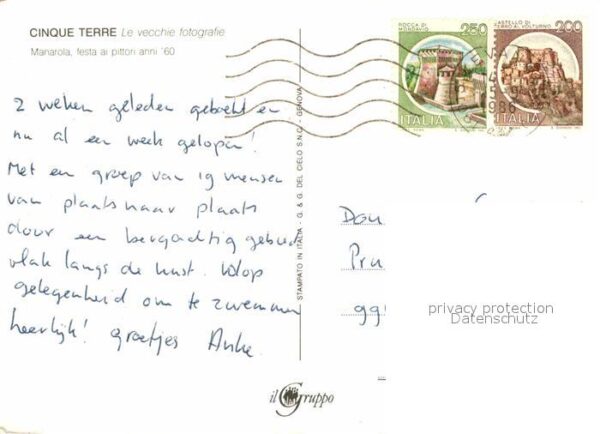 CINQUE TERRE Le vecchie fotografie
Manarola, festa ai pittori anni '60
2 weken geleden geboekt en
nu al een week gelopen!
Met en groep van 19 mensen
van plaats naar plaats
door een bergachtig gebied
vlak langs de kust. Volop
gelegenheid om te zwemmen
heerlijk! groetjes Anke.
STAMPATO IN ITALIA - G. & G. DEL CIELO S.N.C. - GENOVA
il Gruppo
ROCCA DI
MONDAVIO
250
ITALIA
CASTELLO DI
CERRO AL VOLTURNO
200
ITALIA
1986
Don
Pru
99
privacy protection
Datenschutz